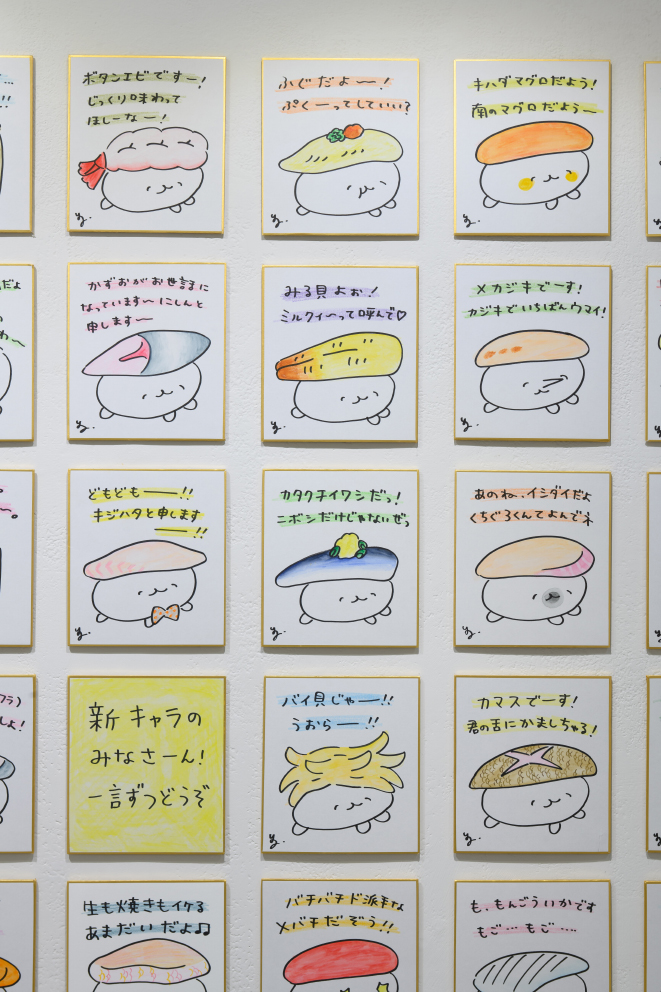 ボタンエビですー!
じっくり味わって
ほしーなー!
ふぐだよ〜〜!
ぷくーってしていい?
キハダマグロだよう!
南のマグロだようー
かずおがお世話に
なっています〜にしんと
申します〜
みる貝よぉ!
ミルクィ〜って呼んで♡
メカジキでーす!
カジキでいちばんウマイ!
どもどもー!!
キジハタと申します
ー!!
カタクチイワシだっ!
ニボシだけじゃないぜっ
あのね、イシダイだよ
くちぐろくんてよんでネ
新キャラの
みなさーん!
一言ずつどうぞ
バイ貝じゃー!!
うおらー!!
カマスでーす!
君の舌にかましちゃる!
生も焼きもイケる
あまだいだよ♫
バチバチド派手な
メバチだぞう!!
も、もんごういかです
もご…もご…